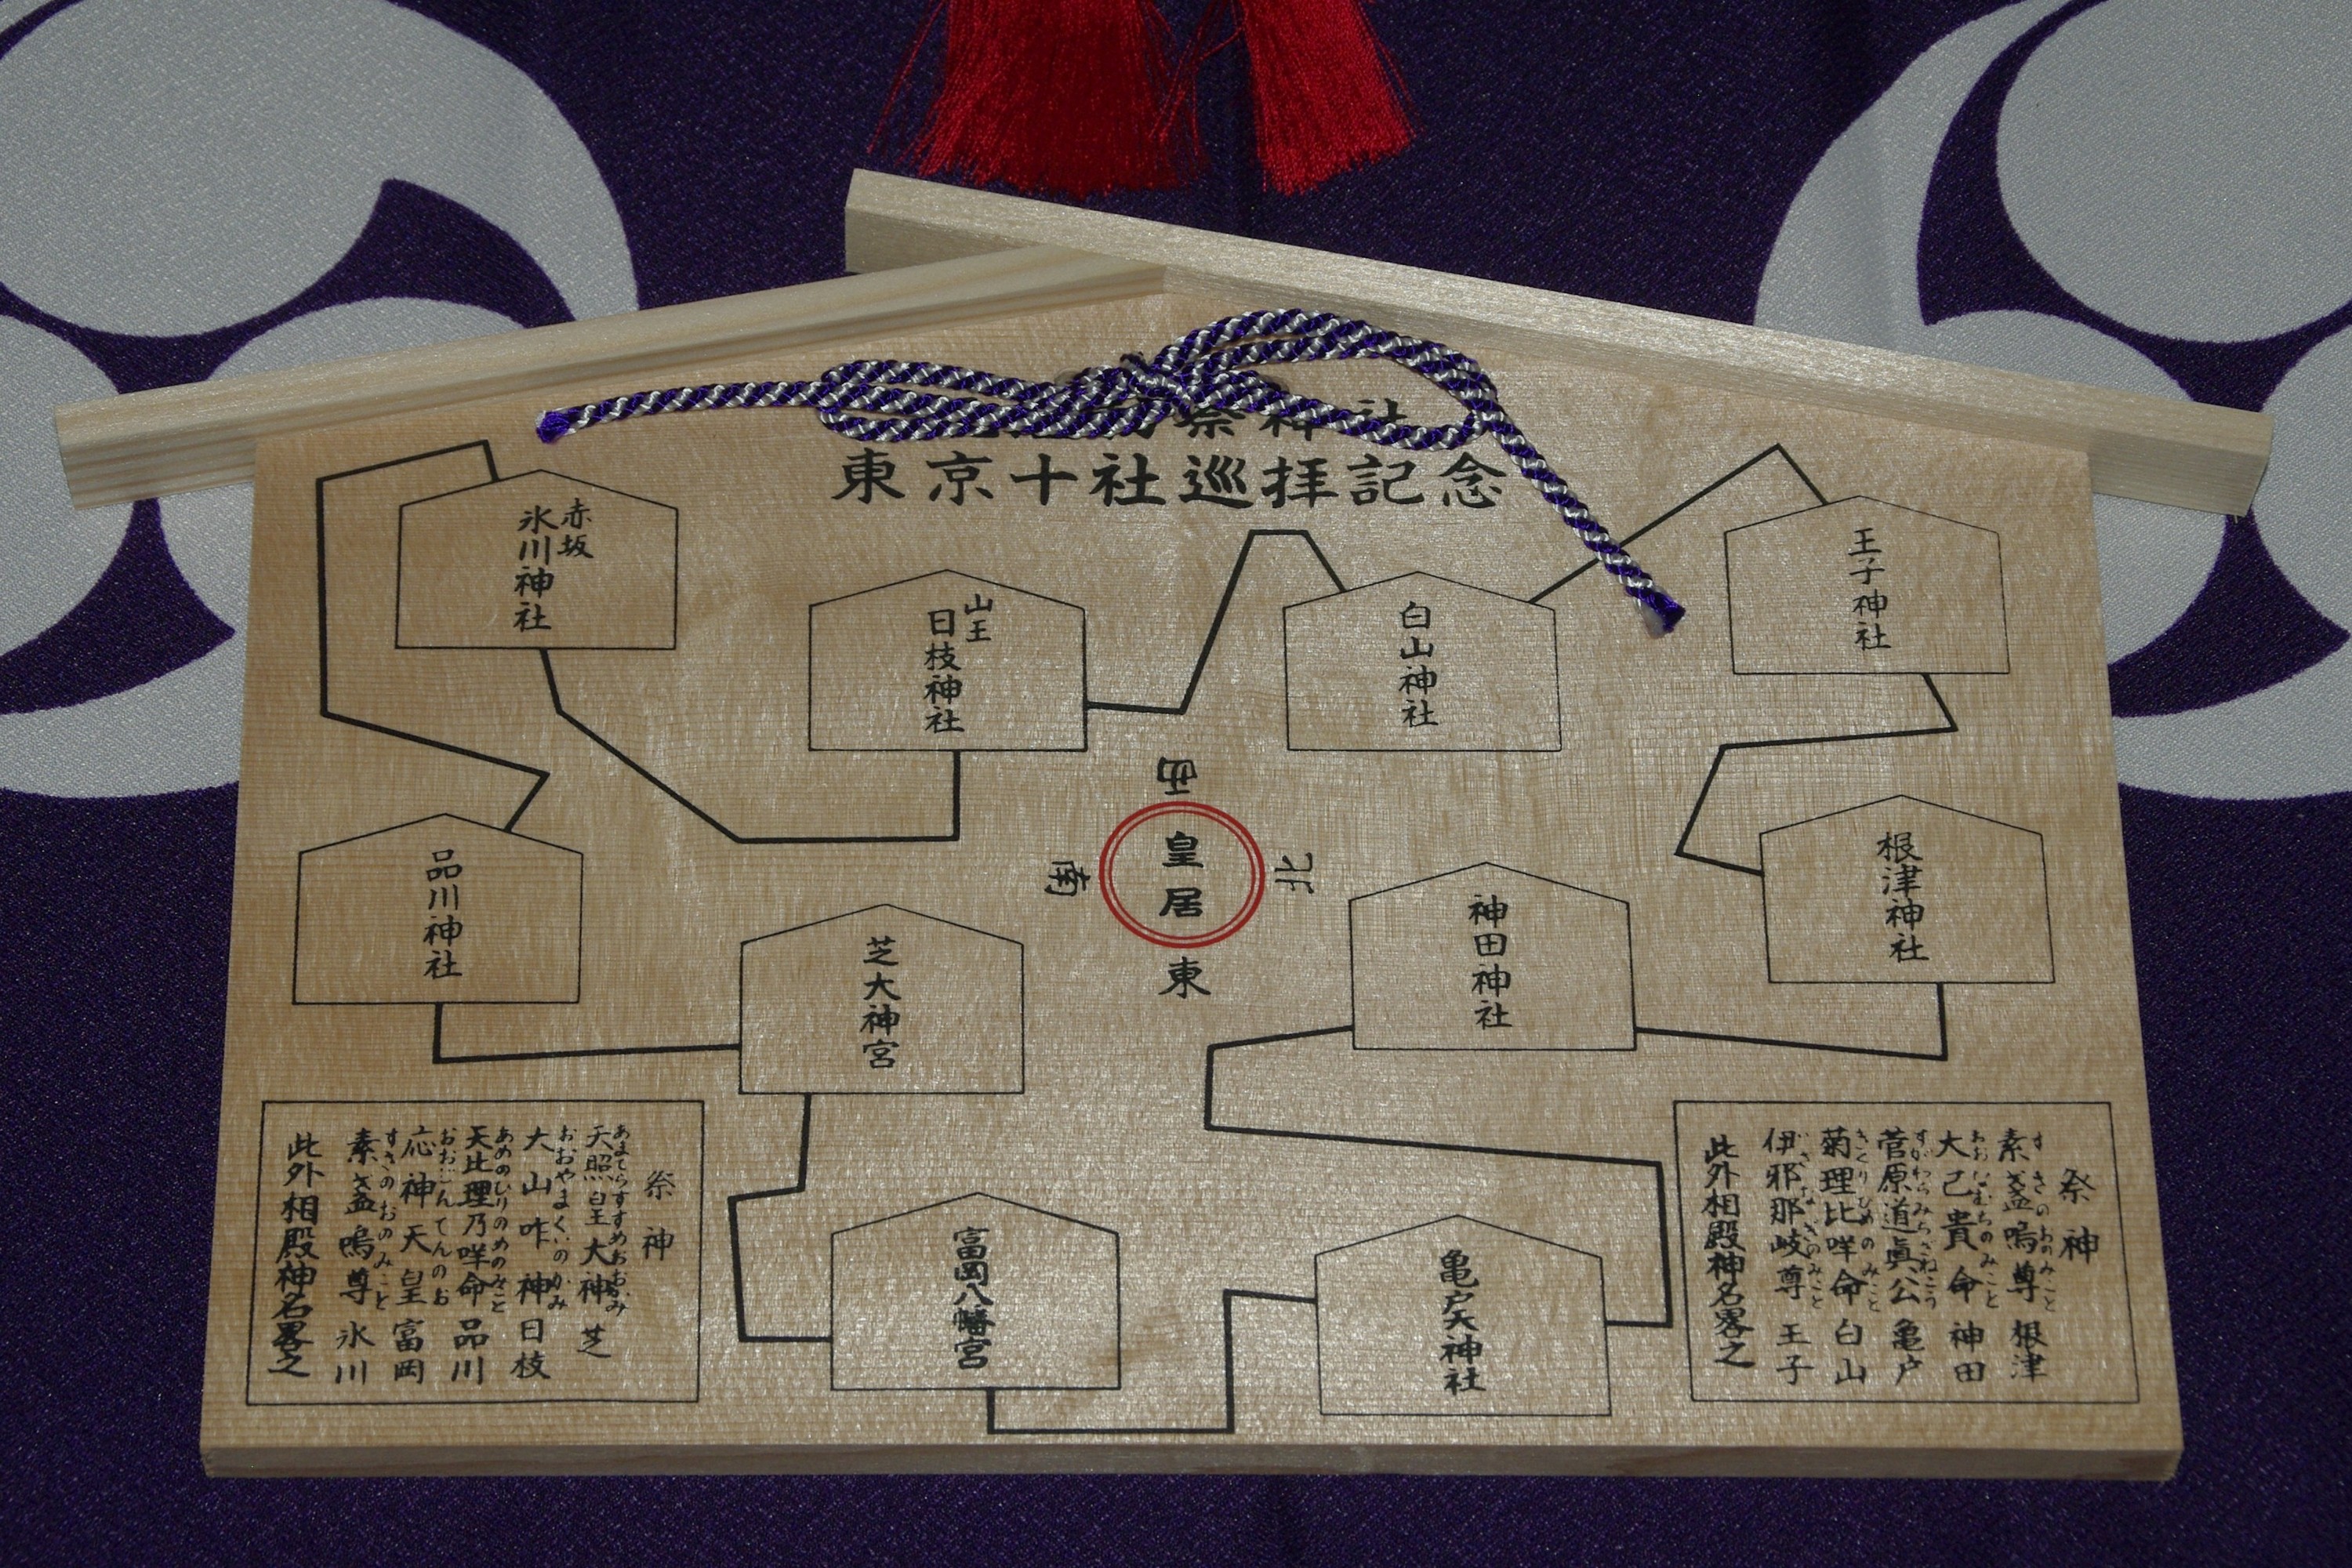 祭神社
東京十社巡拝記念
赤坂
氷川神社
山王
日枝神社
白山神社
王子神社
品川神社
芝大神宮
西
南
皇居
北
東
神田神社
根津神社
富岡八幡宮
亀戸天神社
祭神
あまてらすすめおおかみ
天照皇大神 芝
おおやまくいのかみ
大山咋神 日枝
あめのひりのめのみこと
天比理乃咩命 品川
おおじんてんのお
応神天皇 富岡
すさのおのみこと
素盞嗚尊 氷川
此外相殿神名畧之
祭神
すさのおのみこと
素盞嗚尊 根津
おおなむちのみこと
大己貴命 神田
すがわらみちざねこう
菅原道眞公 亀戸
きくりひめのみこと
菊理比咩命 白山
いさなぎのみこと
伊邪那岐尊 王子
此外相殿神名畧之